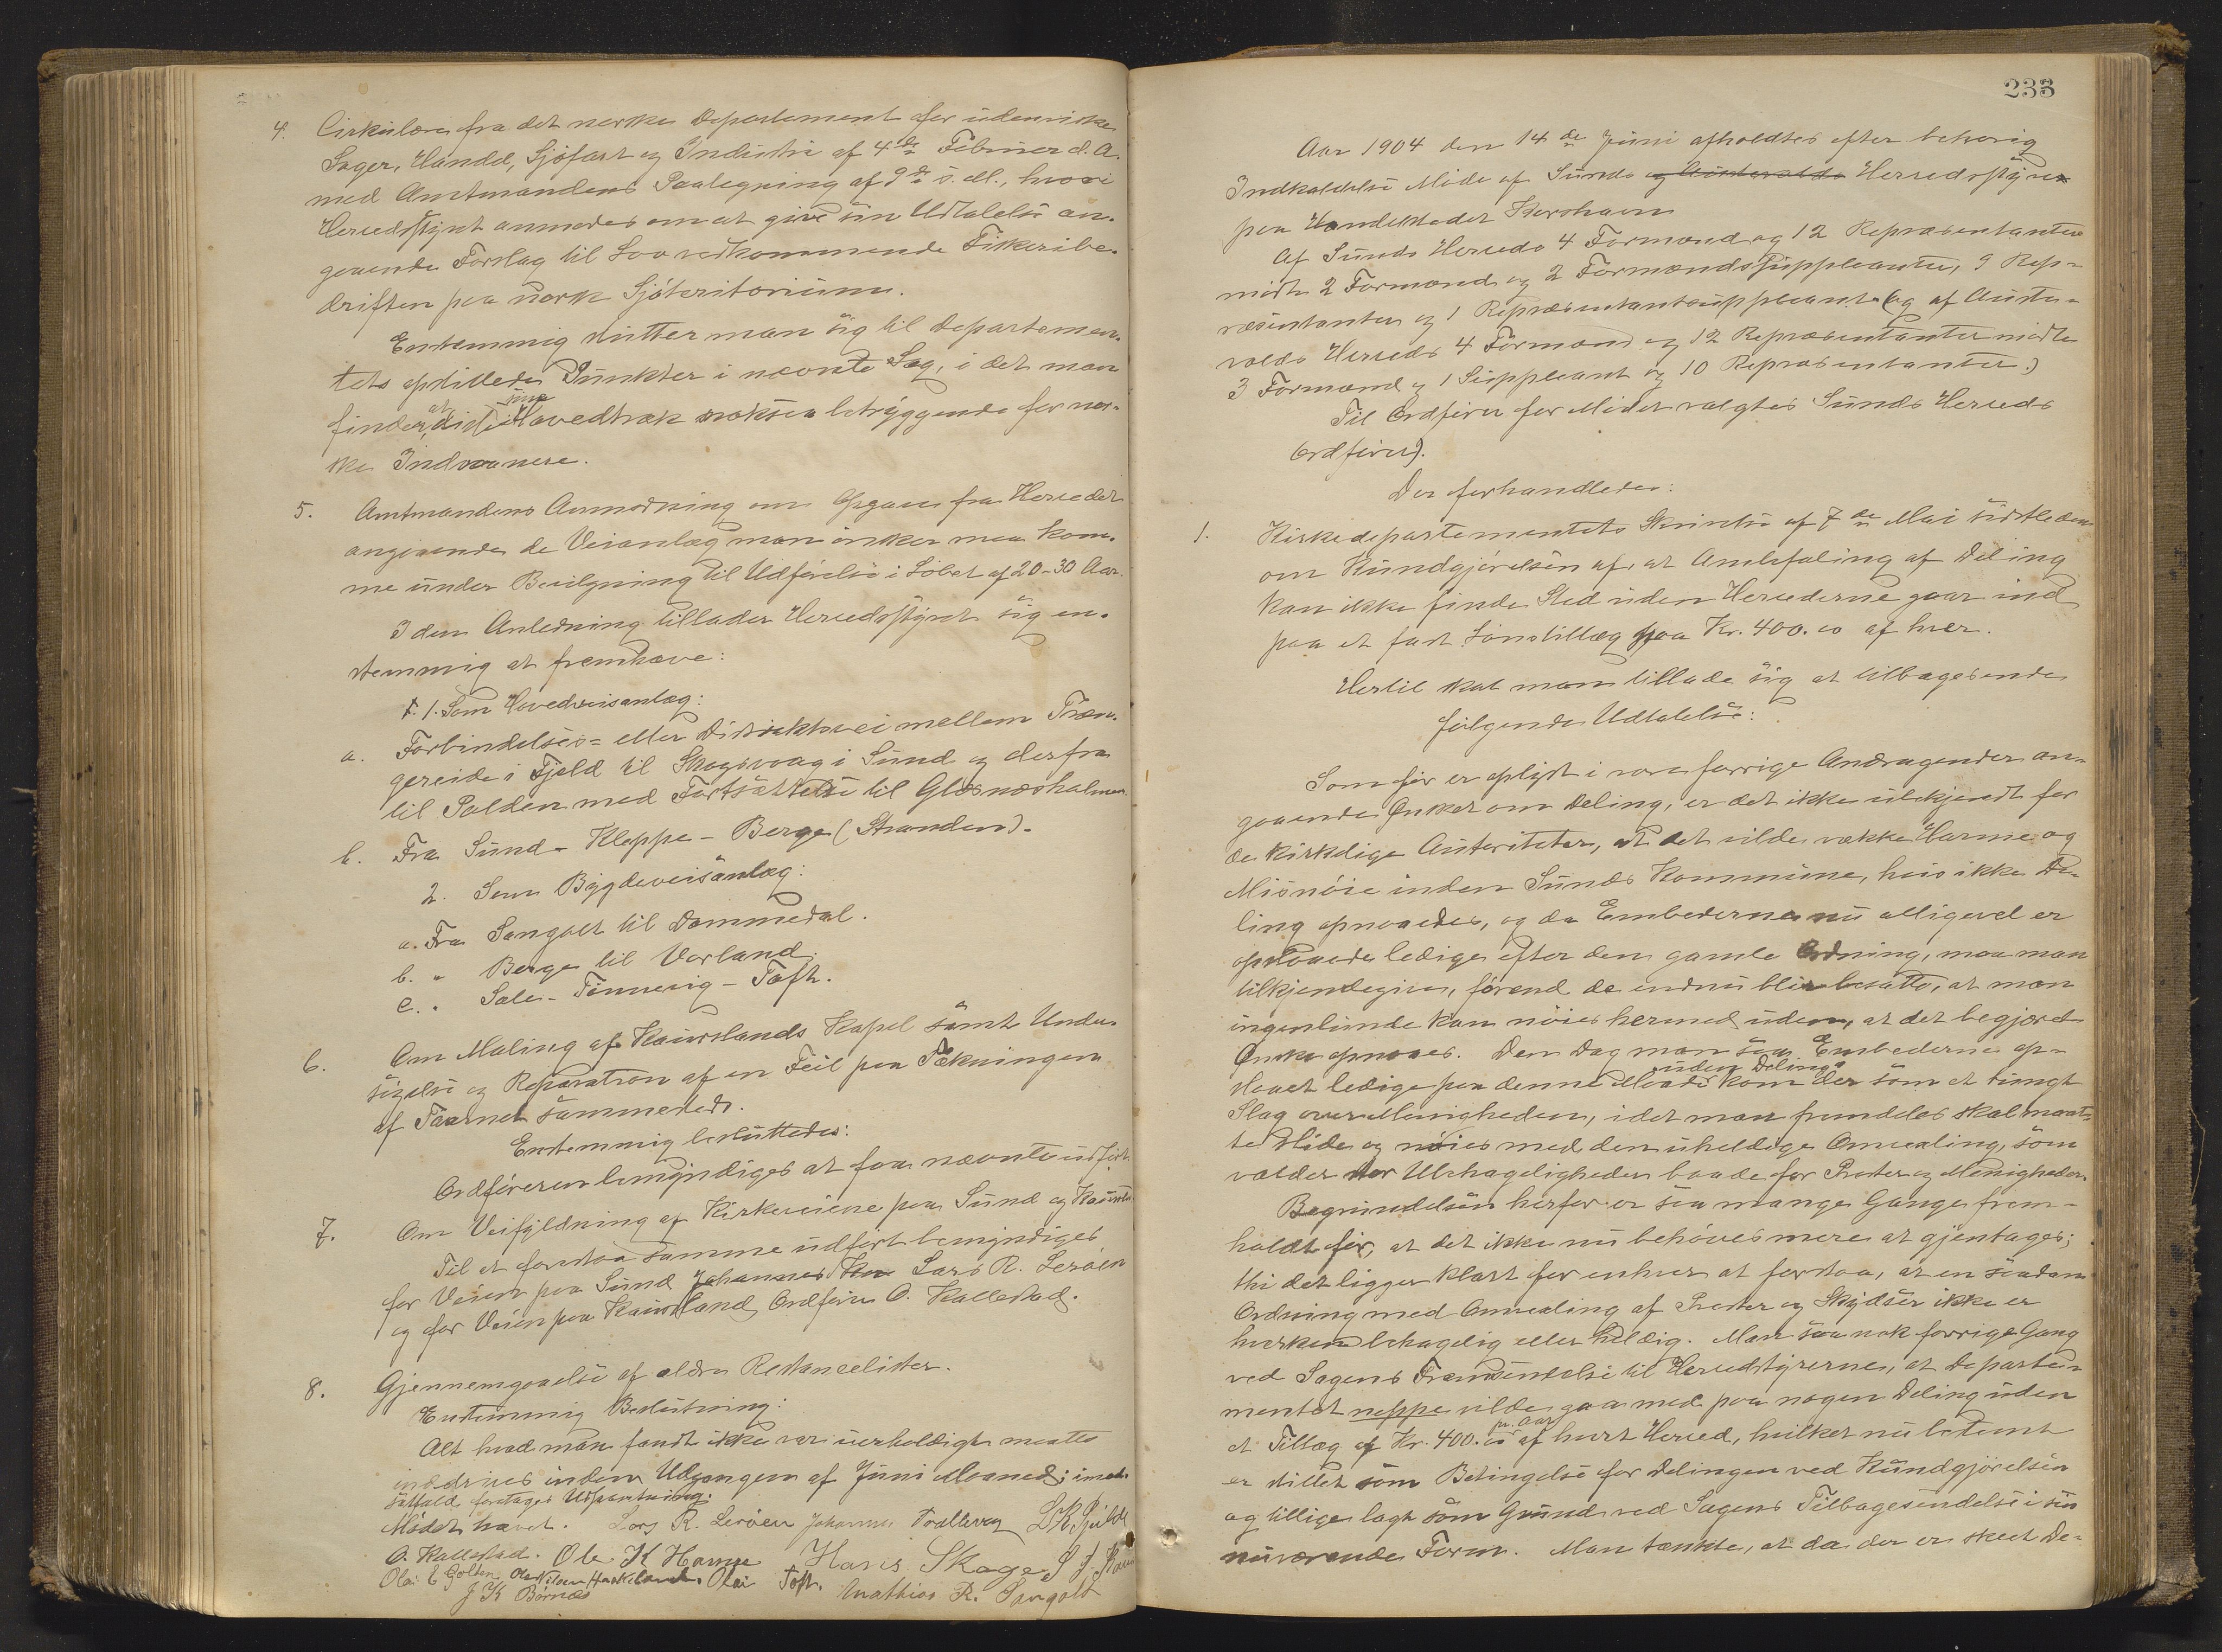 4. Cirkulære fra det norske Departement for udenriske
Sager, Handel, Sjöfart og Industri af 4de Februar d. A.
med Amtmandens Paategning af 9de s. M., hvori
Herredsstyret anmodes om at give sin Udtalelse an-
gaaende Forslag til Lov vedkommende Fiskeribe-
driften paa norsk Sjöteritorium.
Enstemmig slutter man sig til Departemen-
tets opstillede Punkter i nævnte Sag, i det man
finder at disse i sine Hovedtræk noksaa betryggende for nor-
ske Indvaanere.
5. Amtmandens Anmodning om Opgave fra Herredet
angaaende de Veianlæg man önsker maa kom-
me under Bevilgning til Udförelse i Löbet af 20-30 Aar.
I den Anledning tillader Herredsstyret sig en-
stemmig at fremhæve:
1. Som Hovedveisanlæg:
a. Forbindelses- eller Distriktsvei mellem Træn-
gereide i Fjeld til Skogsvaag i Sund og derfra
til Palden med Fortsættelse til Glesnæsholmen
b. Fra Sund - Kleppe - Berge (Stranden).
2. Som Bygdeveisanlæg:
a. Fra Sangolt til Dommedal.
b. " Berge til Vorland.
c. " Sele - Tönnevig - Toft.
6. Om Maling af Kausslands Kapel samt Under-
sögelse og Reparation af en Feil paa Tækningen
af Taarnet sammesteds.
Enstemmig besluttedes:
Ordföreren bemyndiges at faa nævnte udfört
7. Om Veifyldning af Kirkeveiene paa Sund og Kausland
Til at forestaa samme udfört bemyndiges
for Veien paa Sund Johannes Lars R. Leröen
og for Veien paa Kausland Ordförer O. Kallestad.
8. Gjennemgaaelse af ældre Restancelister.
Enstemmig Beslutning:
Alt hvad man fandt ikke var uerholdigt maatte
inddrives inden Udgangen af Juni Maaned; imod-
satfald foretages Udpantning.
Mödet hævet. Lars R. Leröen Johannes Trællevag
O. Kallestad. Ole K Hamre Hans Skage
Olai E Golten. Olai Toft. Mathias R. Sangolt
J K Börnæs
235
Aar 1904 den 14de Juni afholdtes efter behörig
Indkaldelse Möde af Sunds og Austevolds Herredsstyre
paa Handelsstedet Korshavn
Af Sunds Herreds 4 Formænd og 12 Repræsentanter
mödte 2 Formænd og 2 Formandssuppleanter, 9 Rep-
ræsentanter og 1 Repræsentantsuppleant (og af Auste-
volds Herreds 4 Formænd og 12 Repræsentanter mödte
3 Formænd og 1 Suppleant og 10 Repræsentanter.)
Til Ordförer for Mödet valgtes Sunds Herreds
Ordförer).
Der forhandledes:
1. Kirkedepartementets Skrivelse af 7de Mai sidstleden
om Kundgjörelsen af, at Anbefaling af Deling
kan ikke finde Sted uden Herrederne gaar ind
paa et fast Lönstillæg paa Kr. 400.00 af hver.
Hertil skal man tillade sig at tilbagesende
fölgende Udtalelse:
Som för er oplyst i vore forrige Andragender an-
gaaende Önsket om Deling, er det ikke ukjendt for
de kirkelige Autoriteter, at det vilde vække Harme og
Misnöie inden Sunds Kommune, hvis ikke De-
ling opnaaedes, og da Embederne nu alligevel er
opslaaede ledige efter den gamle Ordning, maa man
tilkjendegive, förend de endnu blir besatte, at man
ingenlunde kan nöies hermed uden, at det begjærede
Önske opnaaes. Den Dag man saa Embederne op-
slaaet ledige paa denne Maade uden Deling kom der som et tungt
Slag over Menigheden, idet man fremdeles skal maat-
te lide og nöies med den uheldige Omvexling, som
volder stor Ubehageligheder baade for Prester og Menigheder.
Begrundelsen herfor er saa mange Gange frem-
holdt för, at det ikke nu behöves mere at gjentages;
thi det ligger klart for enhver at forstaa, at en saadan
Ordning med Omvexling af Prester og Skydser ikke er
hverken behagelig eller heldig. Man saa nok forrige Gang
ved Sagens Fremsendelse til Herredstyrerne, at Departe-
mentet neppe vilde gaa med paa nogen Deling uden
et Tillæg af Kr. 400.00 pr. Aar af hvert Herred, hvilket nu bestemt
er stillet som Betingelse for Delingen ved Kundgjörelsen
og tillige lagt som Grund ved Sagens Tilbagesendelse i sin
nuværende Form. Man tænkte, at da der er skeet De-